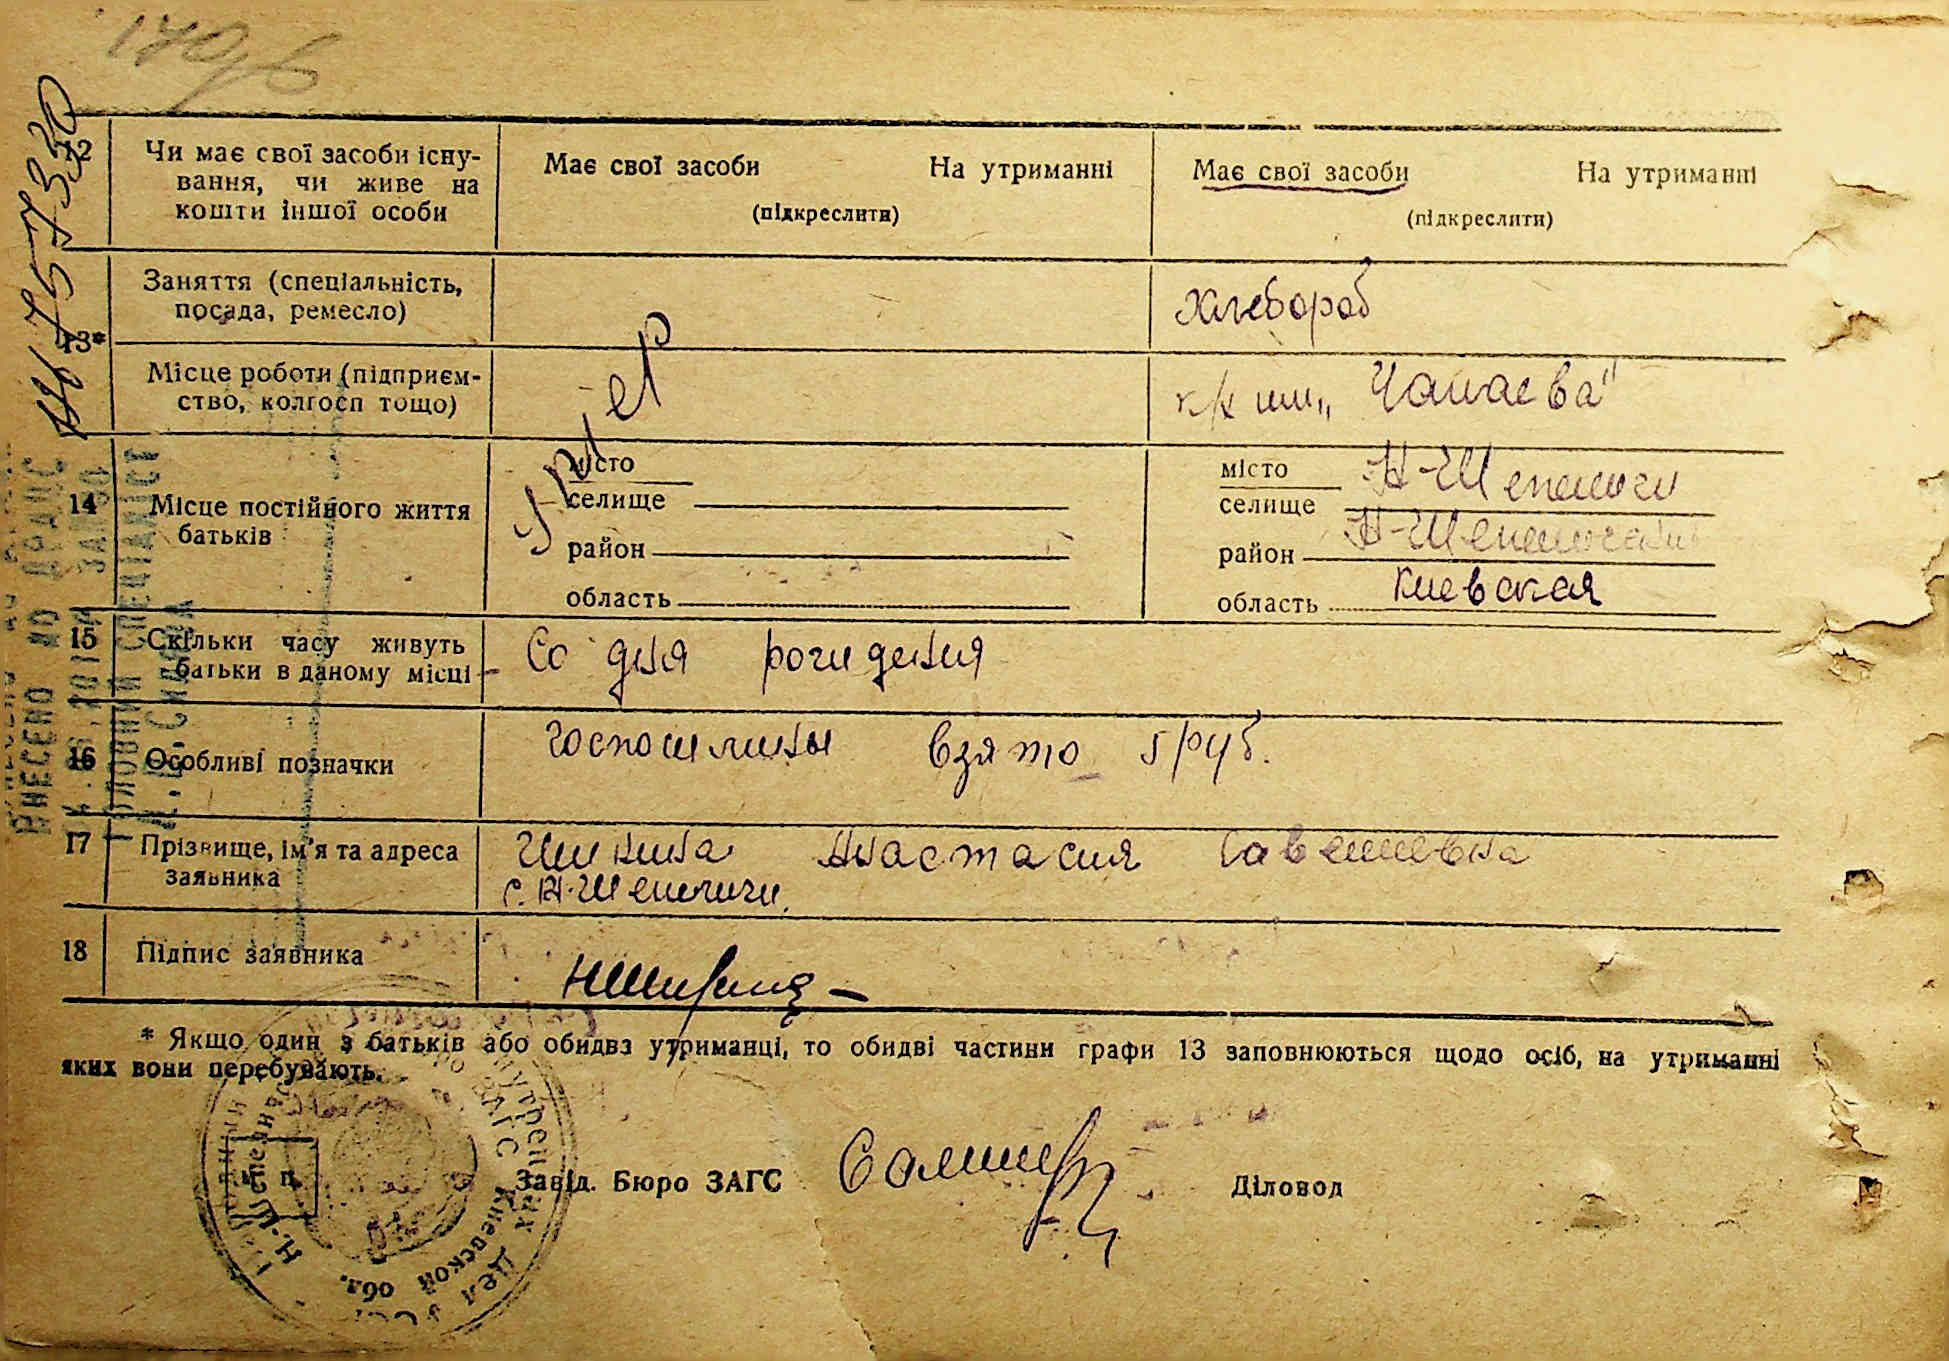 12
Чи має свої засоби існу-
вання, чи живе на
кошти іншої особи
Має свої засоби На утриманні
(підкреслити)
Має свої засоби На утриманні
(підкреслити)
13*
Заняття (спеціальність,
посада, ремесло)
Хлебороб
Місце роботи (підприєм-
ство, колгосп тощо)
умер
к/х им. „Чапаева"
14
Місце постійного життя
батьків
місто
селище
район
область
місто
селище Н-Шепеличи
район Н-Шепеличский
область Киевская
15
Скільки часу живуть
батьки в даному місці
Со дня рождения
16
Особливі позначки
госпошлины взято 5 руб.
17
Прізвище, ім'я та адреса
заявника
Анастасия Савельевна
с. Н-Шепеличи.
18
Підпис заявника
* Якщо один з батьків або обидва утриманці, то обидві частини графи 13 заповнюються щодо осіб, на утриманні
яких вони перебувають.
Завід. Бюро ЗАГС
Діловод
ВНЕСЕНО ДО ДРАЦС
ГОЛОВНИЙ СПЕЦІАЛІСТ
внутренних дел
ЗАГС Киевской обл.